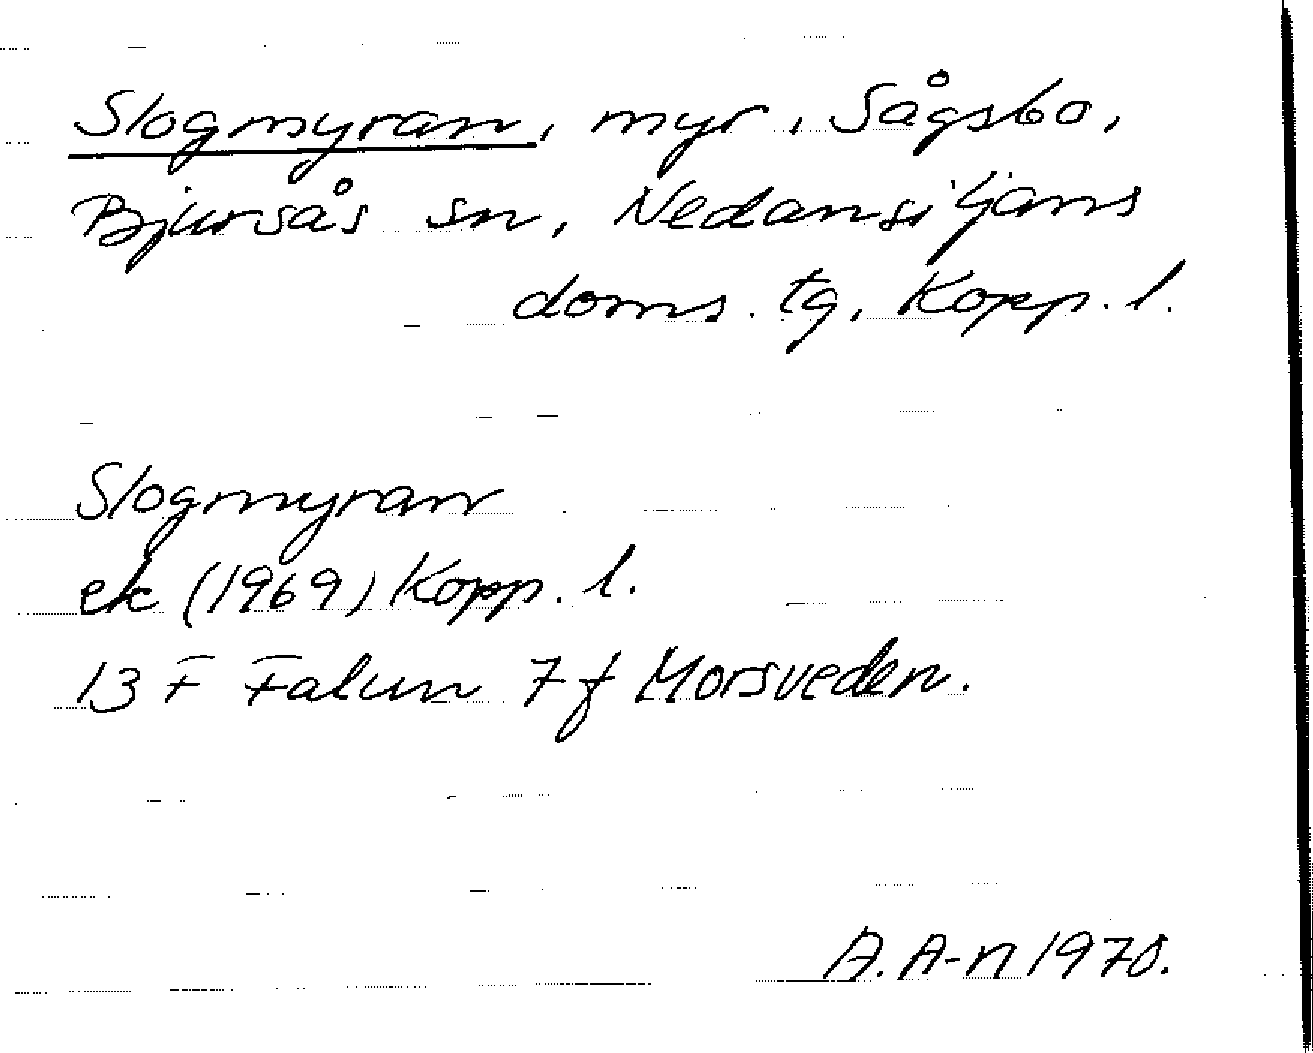 Slogmyran, myr, Sågsbo,
Bjursås sn, Nedansiljans
doms. tg, Kopp. l.
Slogmyran
ek (1969) Kopp. l.
13 F Falun 7f Morsveden.
A. A-n 1970.